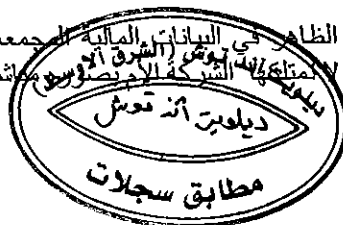 الظاهر في البيانات المالية المجمعة
لا تمتلكها الشركة الأم بصورة مباشرة
ديلويت آند توش (الشرق الأوسط)
ديلويت آند توش
مطابق سجلات